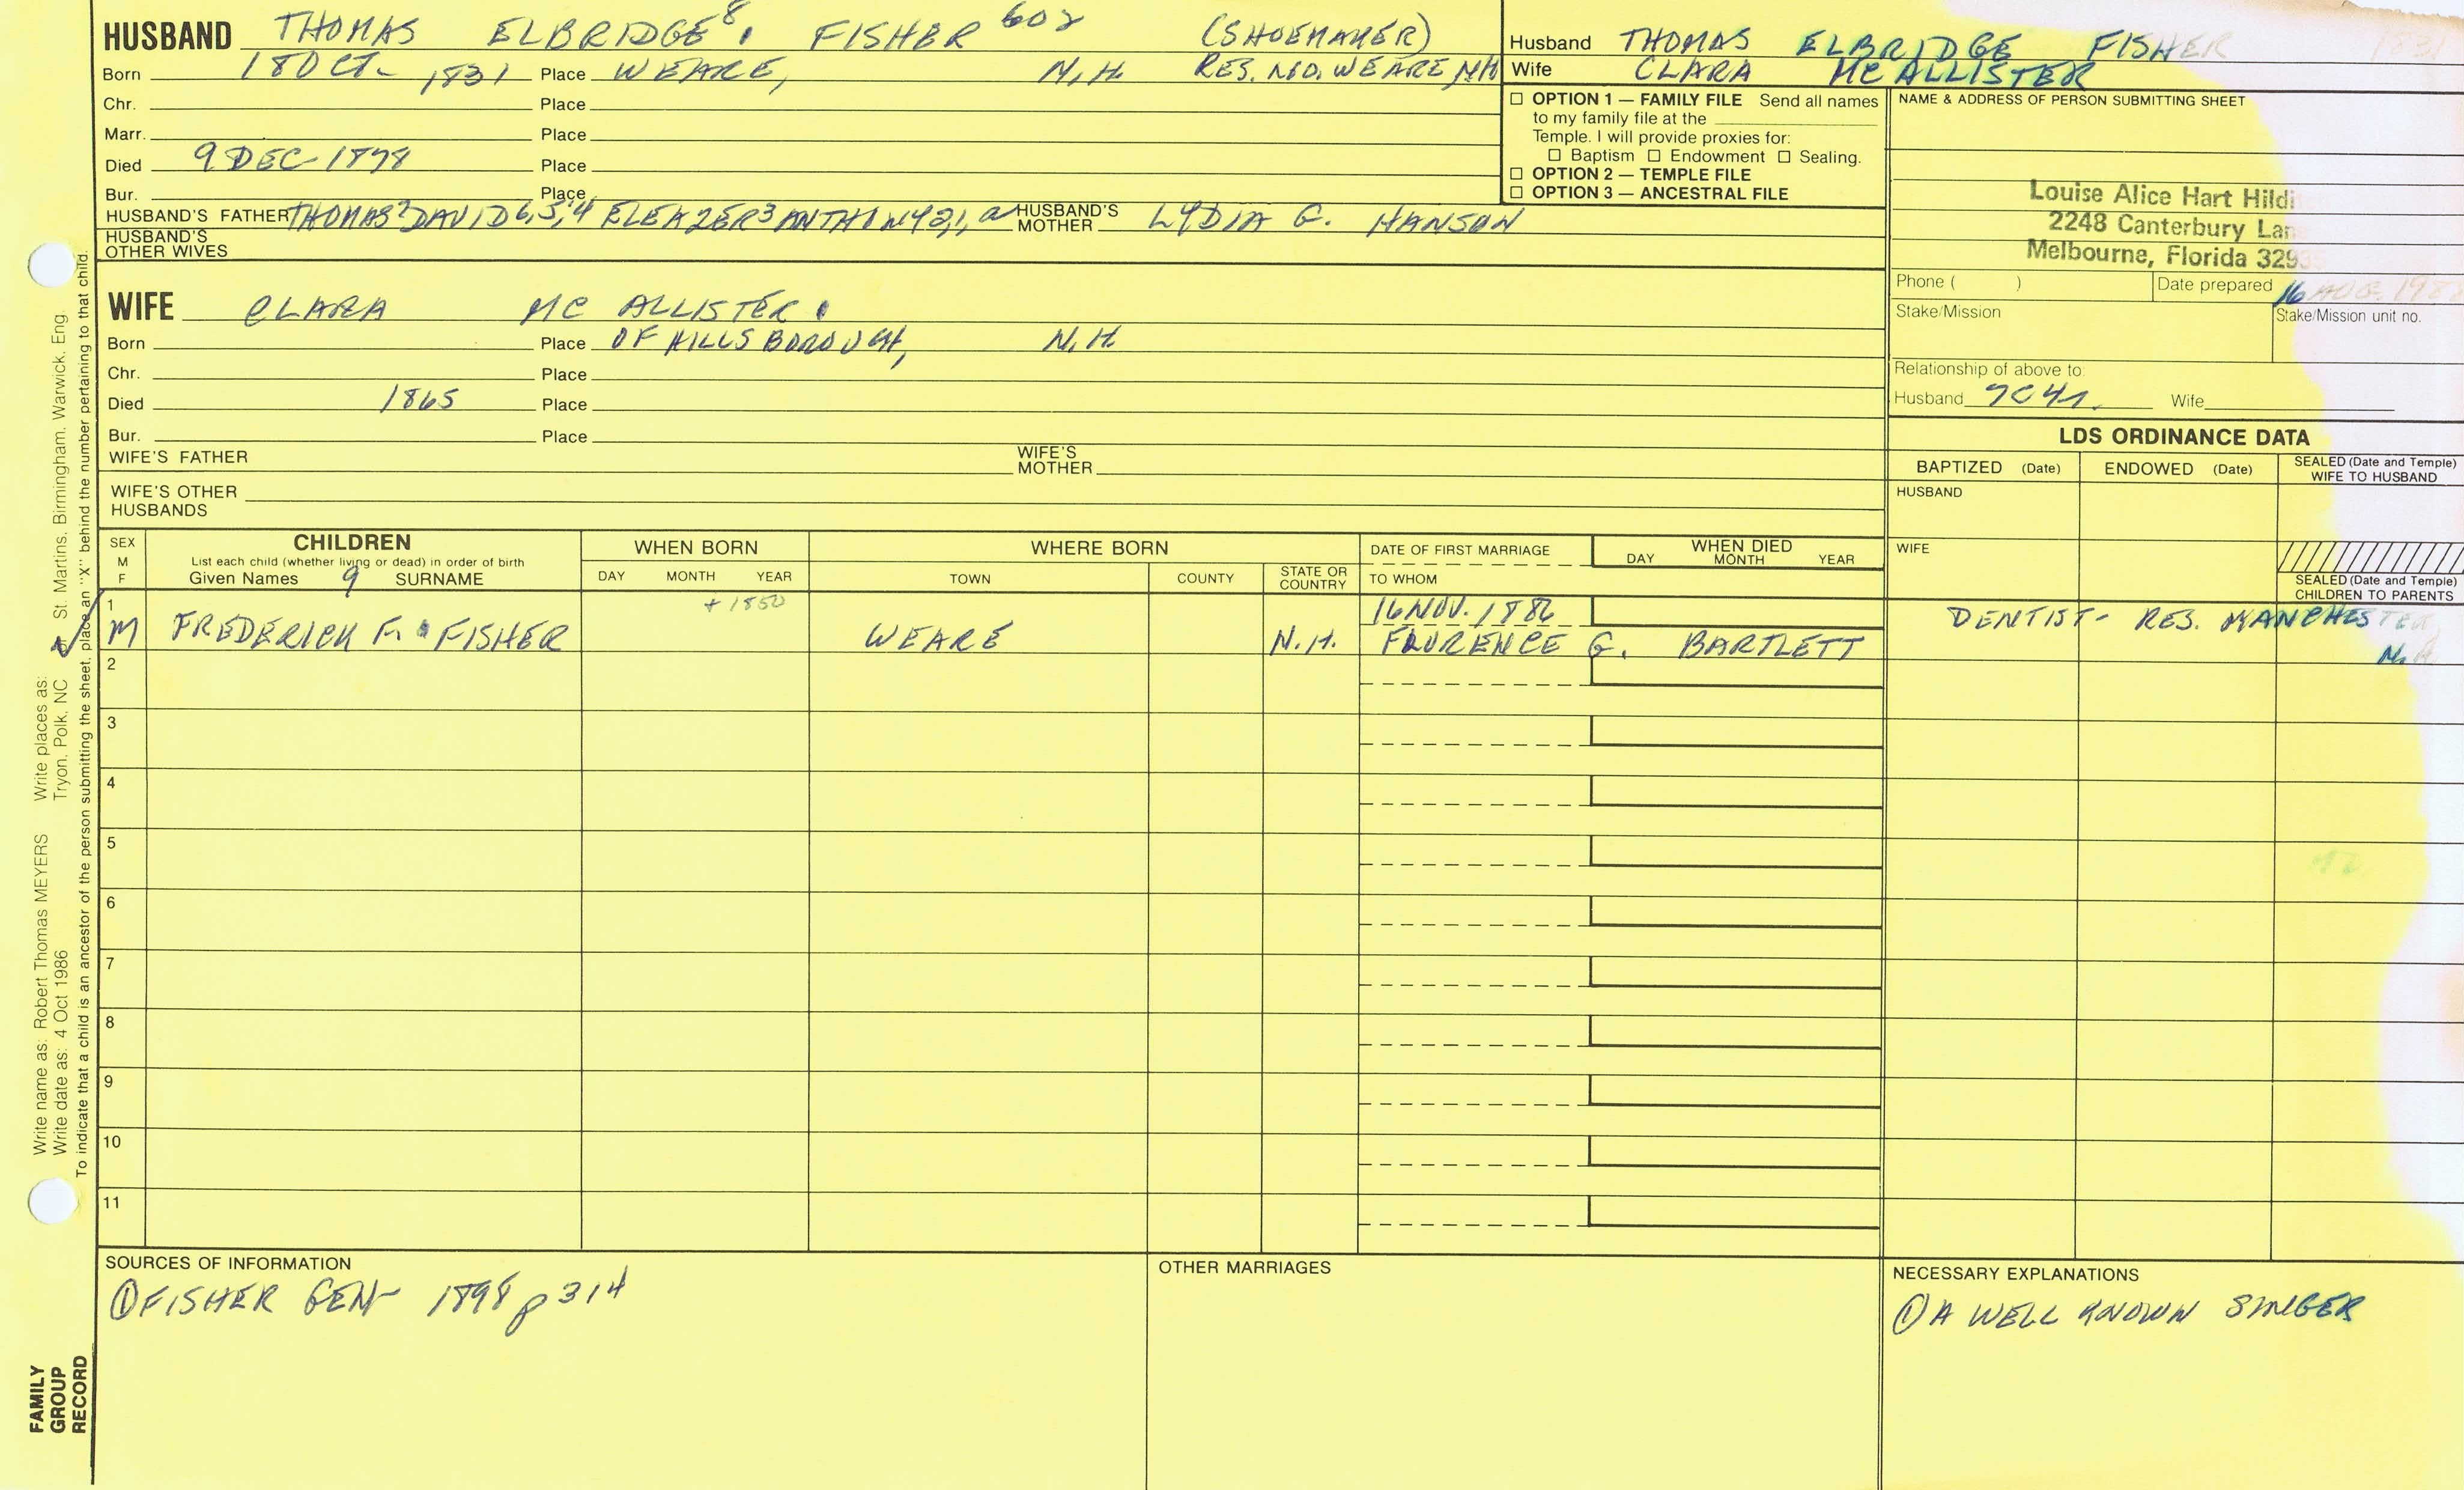 HUSBAND THOMAS ELBRIDGE⁸ FISHER 602 (SHOEMAKER)
Born 18 OCT- 1831 Place WEARE, N.H. RES. NO. WEARE NH
Chr. Place
Marr. Place
Died 9 DEC 1878 Place
Bur. Place
HUSBAND'S FATHER THOMAS⁷ DAVID⁶,⁵,⁴ ELEAZER³ ANTHONY²,¹,ᵃ HUSBAND'S MOTHER LYDIA G. HANSON
HUSBAND'S OTHER WIVES
Husband THOMAS ELBRIDGE FISHER 1831
Wife CLARA MC ALLISTER
☐ OPTION 1 — FAMILY FILE Send all names
to my family file at the
Temple. I will provide proxies for:
☐ Baptism ☐ Endowment ☐ Sealing.
☐ OPTION 2 — TEMPLE FILE
☐ OPTION 3 — ANCESTRAL FILE
NAME & ADDRESS OF PERSON SUBMITTING SHEET
Louise Alice Hart Hildi
2248 Canterbury Lan
Melbourne, Florida 329
Phone ( ) Date prepared 16 AUG. 198
Stake/Mission Stake/Mission unit no.
Relationship of above to:
Husband 7C4R. Wife
WIFE CLARA MC ALLISTER
Born Place OF HILLSBOROUGH, N.H.
Chr. Place
Died 1865 Place
Bur. Place
WIFE'S FATHER WIFE'S MOTHER
WIFE'S OTHER HUSBANDS
LDS ORDINANCE DATA
BAPTIZED (Date) ENDOWED (Date) SEALED (Date and Temple) WIFE TO HUSBAND
HUSBAND
WIFE
SEALED (Date and Temple) CHILDREN TO PARENTS
SEX M F CHILDREN WHEN BORN WHERE BORN DATE OF FIRST MARRIAGE WHEN DIED
List each child (whether living or dead) in order of birth
Given Names 9 SURNAME DAY MONTH YEAR TOWN COUNTY STATE OR COUNTRY TO WHOM DAY MONTH YEAR
1 + 1850 16 NOV. 1886 DENTIST- RES. MANCHESTER
M FREDERICK F. FISHER WEARE N.H. FLORENCE G. BARTLETT N.H.
2
3
4
5
6
7
8
9
10
11
SOURCES OF INFORMATION
① FISHER GEN- 1898 p 314
OTHER MARRIAGES
NECESSARY EXPLANATIONS
① A WELL KNOWN SINGER
Write name as: Robert Thomas MEYERS Write places as:
Write date as: 4 Oct 1986 Tryon, Polk, NC or St. Martins, Birmingham, Warwick, Eng.
To indicate that a child is an ancestor of the person submitting the sheet, place an "X" behind the number pertaining to that child.
FAMILY
GROUP
RECORD